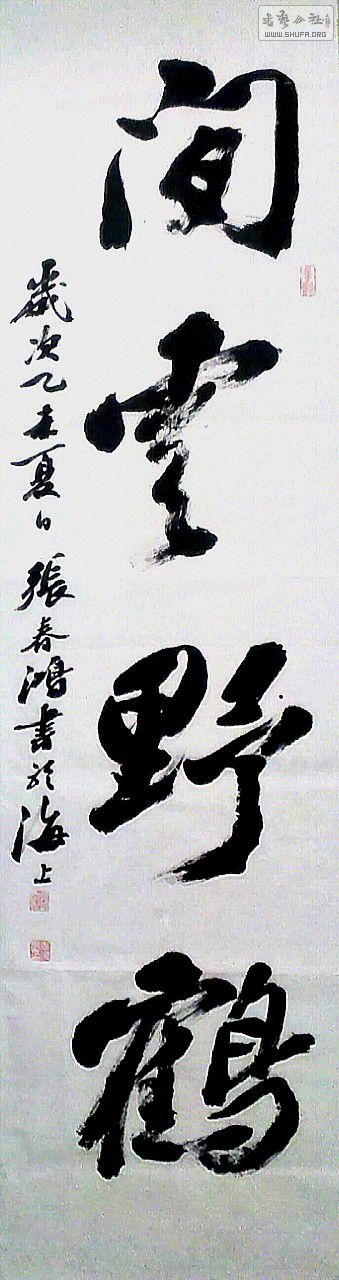 閒雲野鶴
歲次乙未夏日張春鴻書於海上
書藝公社
WWW.SHUFA.ORG